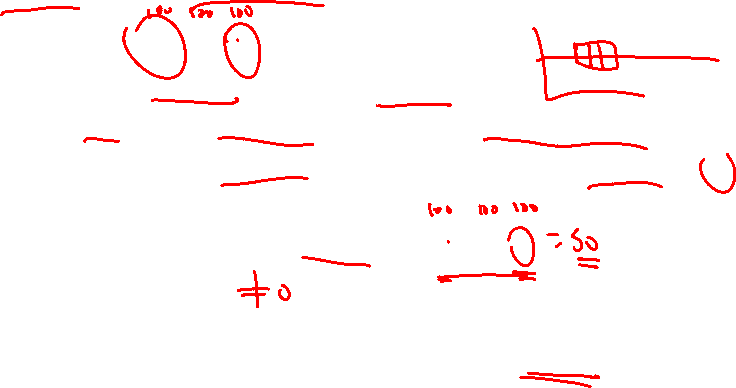 100 100 100
100 100 100
= 50
≠ 0